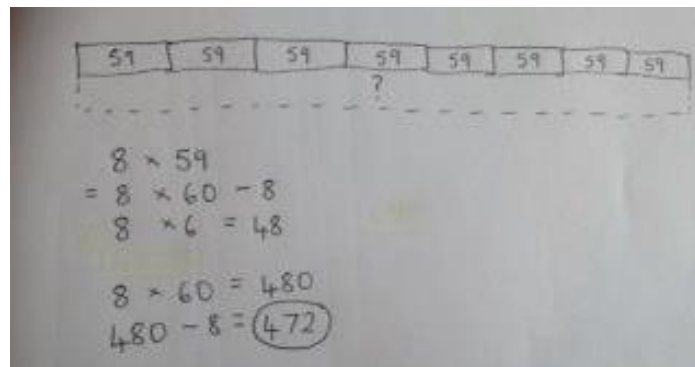 59 59 59 59 59 59 59 59
?
8 × 59
= 8 × 60 - 8
8 × 6 = 48
8 × 60 = 480
480 - 8 = 472